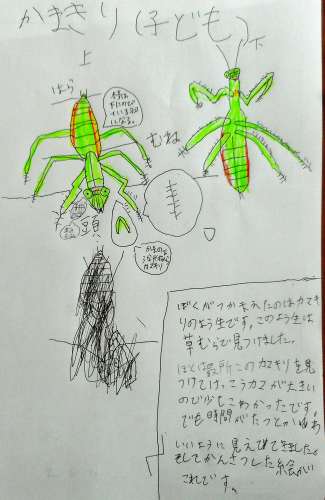 かまきり(子ども)
上
下
はら
むね
頭
ぼくがつかまえたのはカマキ
りのよう生です。このよう生は
草むらで見つけました。
ぼくは最所このカマキリを見
つけてけっこうカマが大きい
ので少しこわかったです。
でも時間がたつとかわあ
いいように見えてきました。
そしてかんさつした絵が
これです。